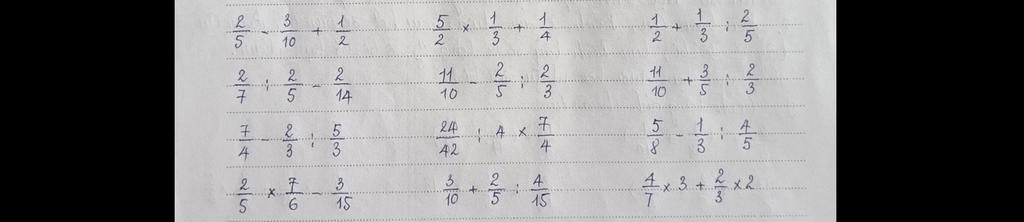 2/5 - 3/10 + 1/2    5/2 × 1/3 + 1/4    1/2 + 1/3 : 2/5
2/7 : 2/5 - 2/14    11/10 - 2/5 : 2/3    11/10 + 3/5 : 2/3
7/4 - 2/3 : 5/3    24/42 : 4 × 7/4    5/8 - 1/3 : 4/5
2/5 × 7/6 - 3/15    3/10 + 2/5 : 4/15    4/7 × 3 + 2/3 × 2